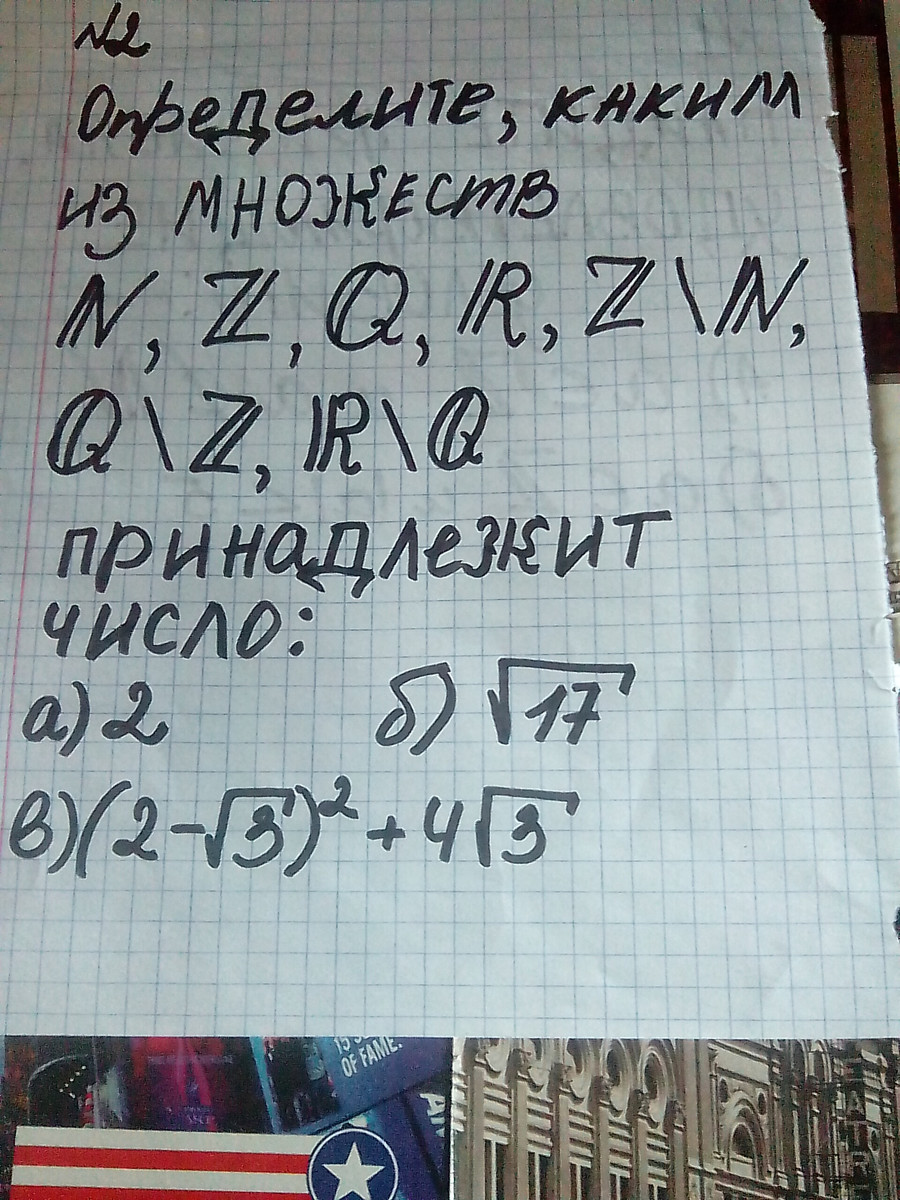 №2
Определите, каким
из множеств
ℕ, ℤ, ℚ, ℝ, ℤ \ ℕ,
ℚ \ ℤ, ℝ \ ℚ
принадлежит
число:
а) 2 б) √17
в) (2 - √3)² + 4√3
OF FAME.